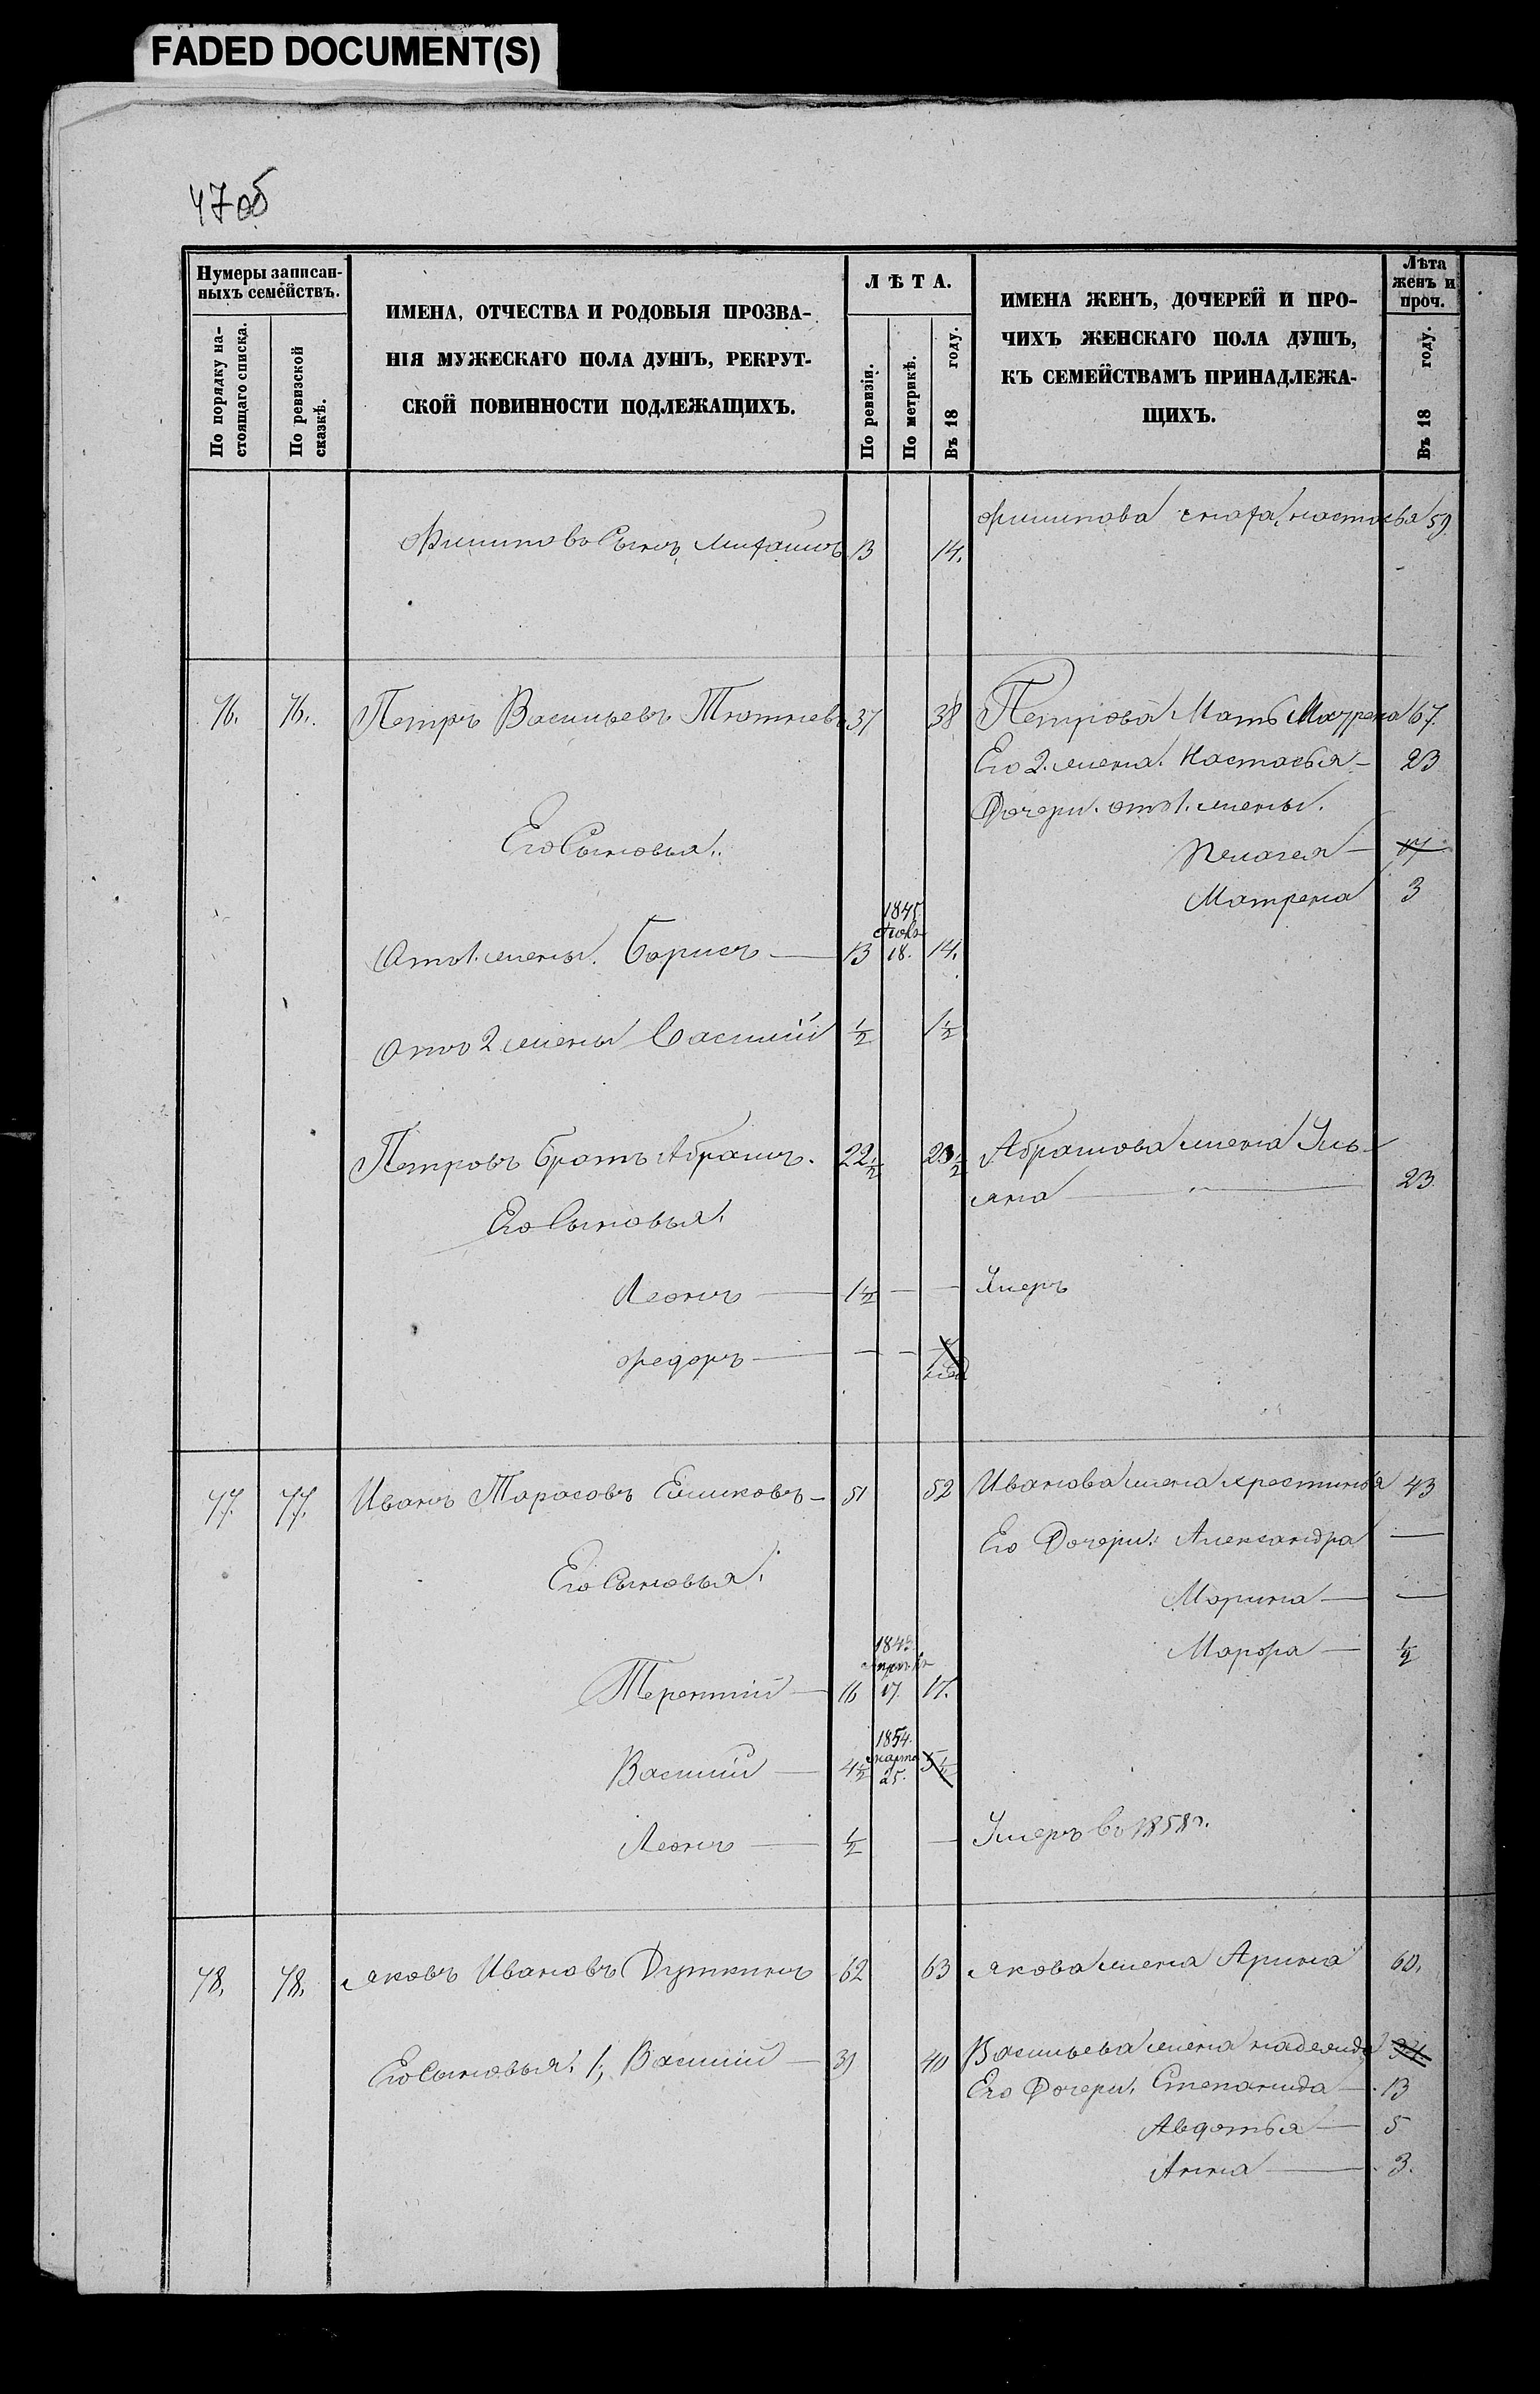 FADED DOCUMENT(S)
47об
Нумеры записан-
ныхъ семействъ.
По порядку на-
стоящаго списка.
По ревизской
сказкѣ.
ИМЕНА, ОТЧЕСТВА И РОДОВЫЯ ПРОЗВА-
НІЯ МУЖЕСКАГО ПОЛА ДУШЪ, РЕКРУТ-
СКОЙ ПОВИННОСТИ ПОДЛЕЖАЩИХЪ.
ЛѢТА.
По ревизіи.
По метрикѣ.
Въ 18 году.
ИМЕНА ЖЕНЪ, ДОЧЕРЕЙ И ПРО-
ЧИХЪ ЖЕНСКАГО ПОЛА ДУШЪ,
КЪ СЕМЕЙСТВАМЪ ПРИНАДЛЕЖА-
ЩИХЪ.
Лѣта
женъ и
проч.
Въ 18 году.
Филипова сноха, настасья 59
Филиповъ Сынъ, Михаилъ 13 14.
76. 76. Петръ Васильевъ 37 38 Петрова Мать Мавра 67.
Его 2. жена. Настасья — 23
Дочери. отъ 1. жены.
Его Сыновья.
Пелагея — 17
Матрена 3
Отъ 1. жены. Борисъ — 13 1845. 18. 14.
Отъ 2 жены Василий ½ 1½
Петровъ братъ Абрамъ. 22½ 23½ Абрамова жена Уль-
яна — 23
Его Сыновья.
Леонъ — 1½ — — Умеръ
Федоръ — — —
77. 77. Иванъ Тарасовъ — 51 52 Иванова жена Хрестинья 43
Его Дочери: Александра —
Его Сыновья:
Марина — —
Марфа — ½
Терентий — 16 17. 17.
Василий — 4½ 1854. марта 25. 5½
Леонъ — ½ — Умеръ въ 1858 г.
78. 78. Яковъ Ивановъ Дуткинъ 62 63 Якова жена Арина 60.
Его Сыновья: 1, Василий — 39 40 Васильева жена надежда
Его Дочери. Степанида — 13
Авдотья — 5
Анна — 3.